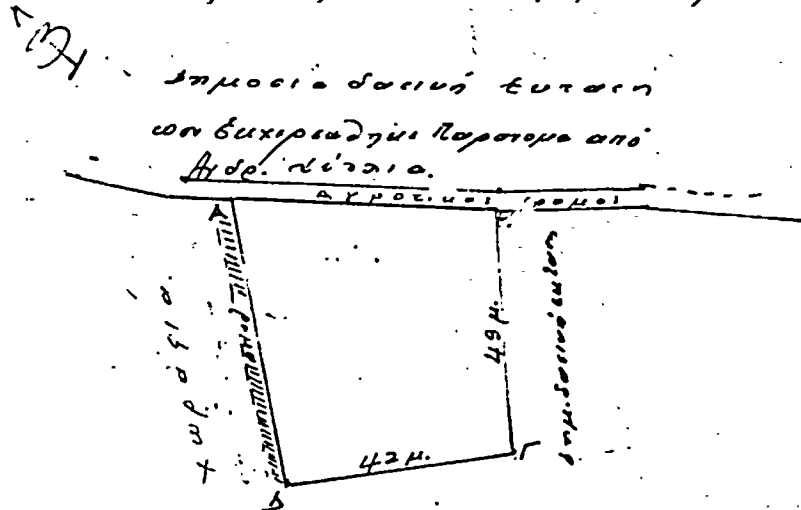 Δημοσία δασική έκταση
που εκχερσώθηκε παράνομα από
Ανδρ.
Αγροτικός δρόμος
Α
χωράφια.
49 μ.
δημ. δασική έκταση
42 μ.
Γ
Δ